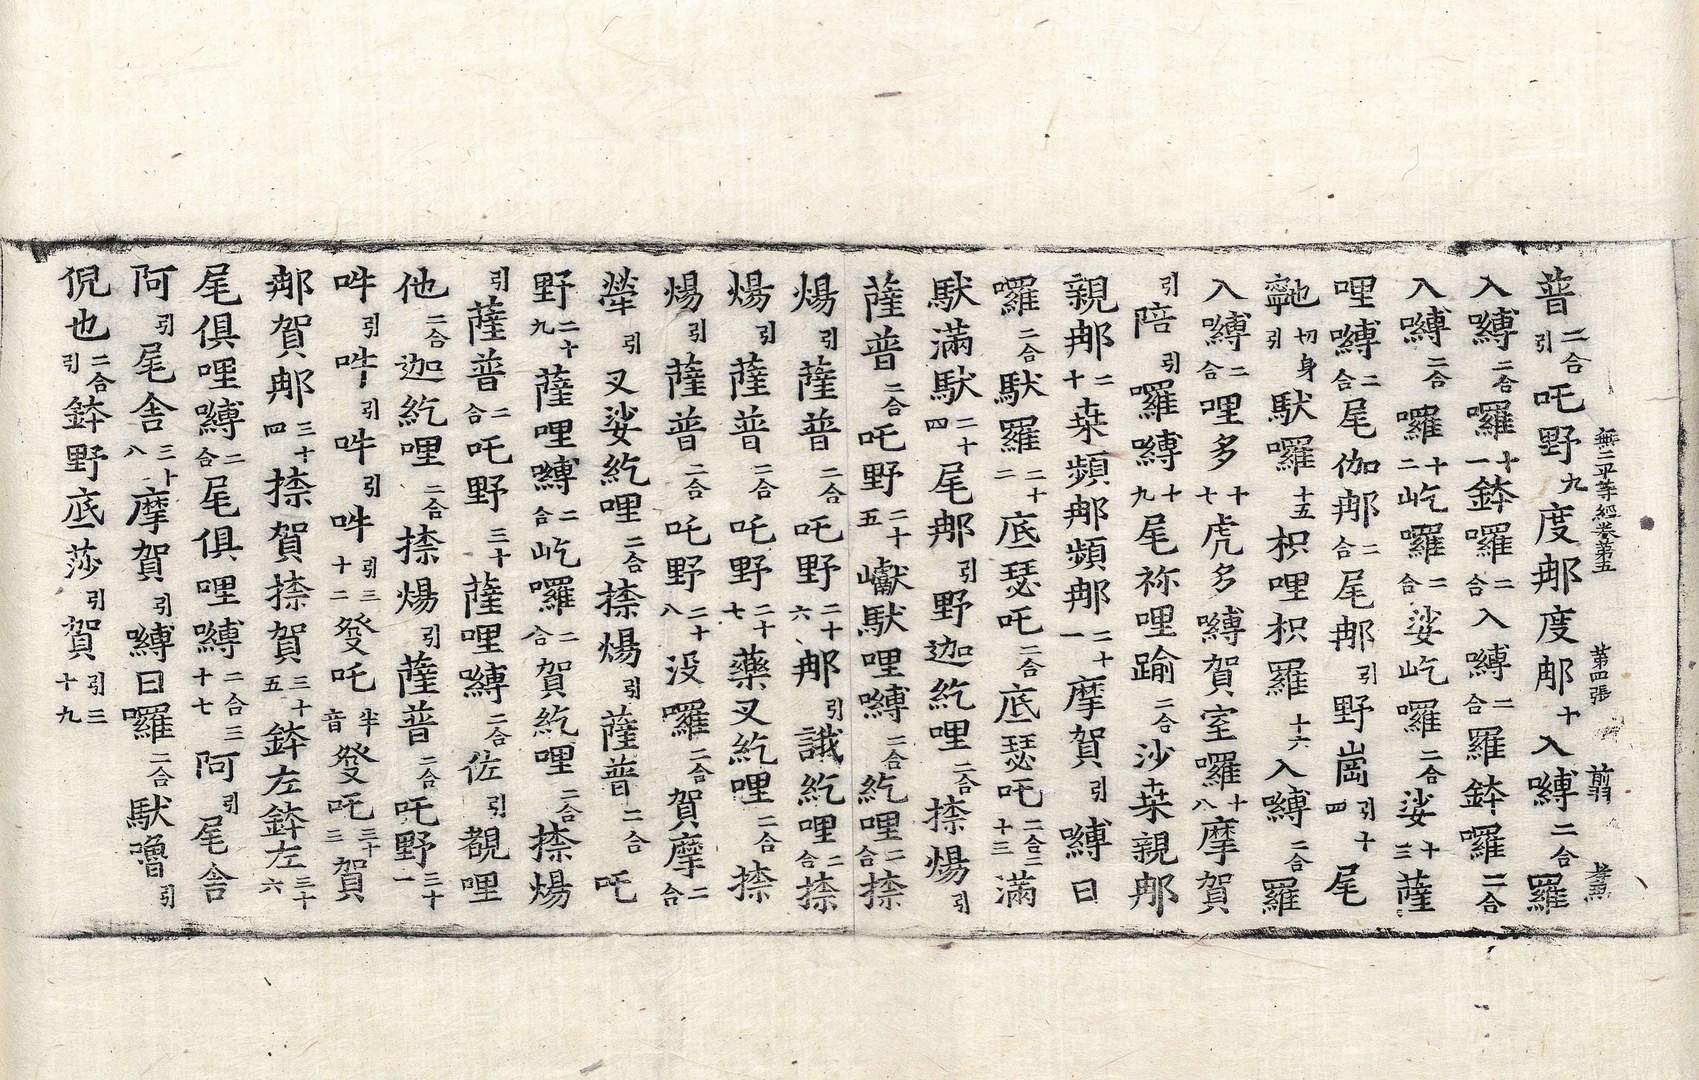 無二平等經卷第五 第四張 剪
普二合引吒野九度那度那十入嚩二合羅
入嚩二合囉十一鉢囉二合入嚩二合羅鉢囉二合
入嚩二合囉十二屹囉二合娑屹囉二合娑十三薩
哩嚩二合尾伽那二合尾那引野崗引十四尾
也切身引馱囉十五枳哩枳羅十六入嚩二合羅
入嚩二合哩多十七虎多嚩賀室囉十八摩賀
引陪引囉嚩十九尾祢哩踰二合沙桒親那
親那二十桒頻那頻那二十一摩賀引嚩日
囉二合馱羅二十二底瑟吒二合底瑟吒二合二十三滿
馱滿馱二十四尾那引野迦紇哩二合捺煬引
薩普二合吒野二十五巘馱哩嚩二合紇哩二合捺
煬引薩普二合吒野二十六那引誐紇哩二合捺
煬引薩普二合吒野二十七藥叉紇哩二合捺
煬引薩普二合吒野二十八没囉二合賀摩二合
犖引叉娑紇哩二合捺煬引薩普二合吒
野二十九薩哩嚩二合屹囉二合賀紇哩二合捺煬
引薩普二合吒野三十薩哩嚩二合佐引覩哩
他二合迦紇哩二合捺煬引薩普二合吒野三十一
吽引吽引吽引吽引三十二發吒半音發吒三十三賀
那賀那三十四捺賀捺賀三十五鉢左鉢左三十六
尾俱哩嚩二合尾俱哩嚩二合三十七阿引尾舍
阿引尾舍三十八摩賀引嚩日囉二合馱嚕引
倪也二合引鉢野底莎引賀引三十九